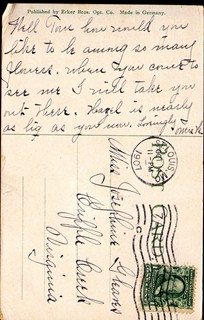 Published by Erker Bros. Opt. Co. Made in Germany.
Well how would you
like to be among so many
flowers. when you come to
see me I will take you
out there. Hazel is nearly
as big as you now. Lovingly
POST CARD
LOUIS
1907
Miss Josephine Graves
Creek
Virginia